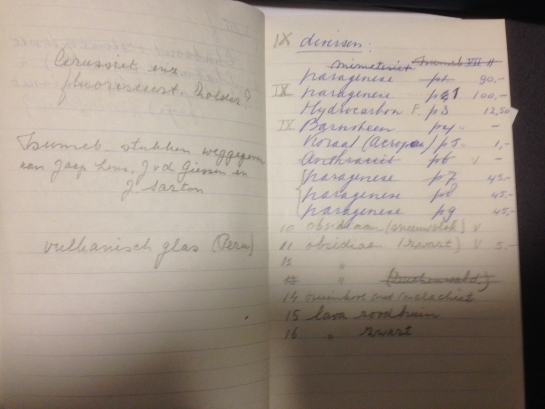 Cerussiet enz
fluoresceert helder?
Tsumeb stukken weggegeven
aan Jaap Lens, J v d Giessen en
J. Sarton
vulkanisch glas (Pera)
IX diversen:
mimetesiet Tsumeb VII
paragenese p1 90,-
IX paragenese p2 100,-
Hydrocarbon F. p3 12,50
IX Barnsteen p4 -
Koraal (Acropora) p5 1,-
Anthraciet p6 v -
paragenese p7 45,-
paragenese p8 45,-
paragenese p9 45,-
10 obsidiaan (sneeuwvlok) v
11 obsidiaan (zwart) v 5,-
12 "
13 "
14 malachiet
15 lava roodbruin
16 " zwart